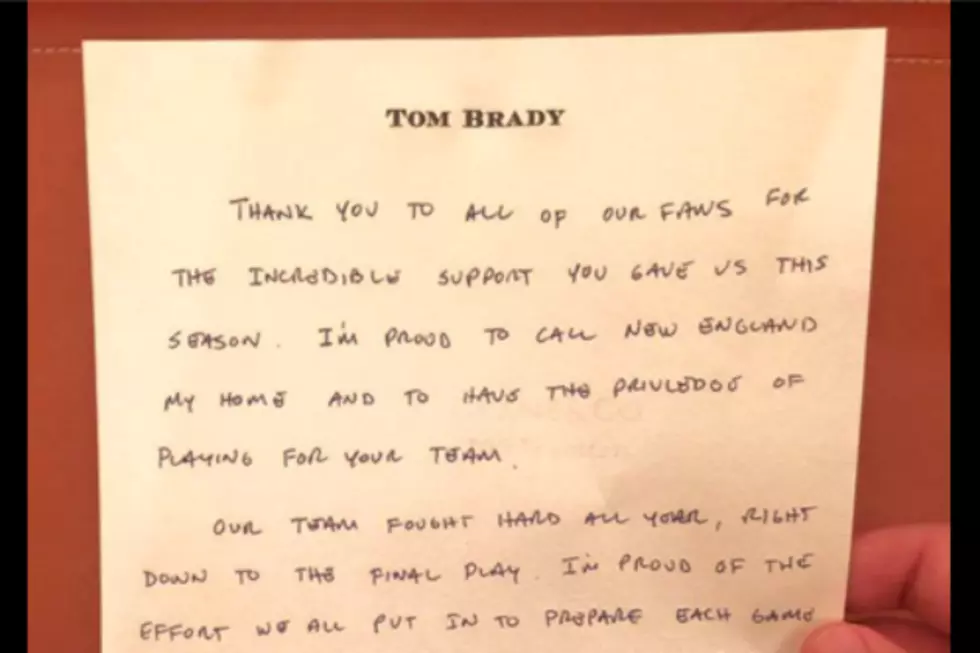 TOM BRADY
THANK YOU TO ALL OF OUR FANS FOR
THE INCREDIBLE SUPPORT YOU GAVE US THIS
SEASON. I'M PROUD TO CALL NEW ENGLAND
MY HOME AND TO HAVE THE PRIVLEDGE OF
PLAYING FOR YOUR TEAM.
OUR TEAM FOUGHT HARD ALL YEAR, RIGHT
DOWN TO THE FINAL PLAY. I'M PROUD OF THE
EFFORT WE ALL PUT IN TO PREPARE EACH GAME